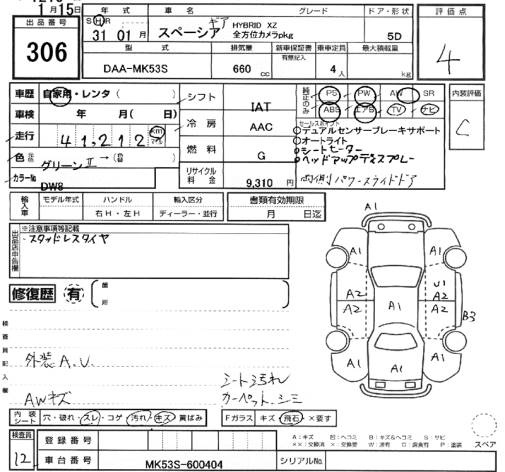 1月15日
年式 車名 グレード ドア・形状 評価点
出品番号 306
S H R 31 01月 スペーシア ギア HYBRID XZ 全方位カメラpkg 5D
4
型式 排気量 新車保証書 乗車定員 最大積載量
有無記入
DAA-MK53S 660 cc 4人 kg
車歴 自家用・レンタ( ) シフト IAT
純正のみ PS PW AW SR
ABS エアB TV ナビ
内装評価 C
車検 年 月( 日) 冷房 AAC
セールスポイント
デュアルセンサーブレーキサポート
オートライト
シートヒーター
ヘッドアップディスプレー
両側パワースライドドア
走行 41,212 km
燃料 G
色 グリーンⅡ →( )
リサイクル料金 9,310 円
カラーNo DW8
輸入車 モデル年式 ハンドル 輸入区分 書類有効期限
右H・左H ディーラー・並行 月 日迄
出品店申告欄 ※注意事項等記載
・スタッドレスタイヤ
修復歴 有 箇所
検査員記入欄
外装A.U
AWキズ
シート汚れ
カーペットシミ
A1
A1 A1
A2 U1
A2 A1 A2 B3
A1 A1
A1
内装シート 穴・破れ・スレ・コゲ 汚れ・キズ 黄ばみ
Fガラス キズ 飛石 ×要す
スペア
検査員 12
登録番号
車台番号 MK53S-600404 シリアルNo.
A:キズ 凹:ヘコミ B:キズ&ヘコミ S:サビ
××:交換済 ×:交換要 W:波有 C:腐食有 P:塗装